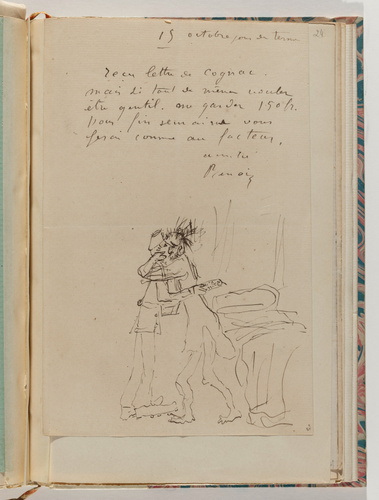 15 octobre jour du terme
28
reçu lettre de Cognac.
mais di tout de même vouloir
être gentil. me garder 150 fr.
pour fin semaine vous
ferai comme au facteur,
amitié
Renoir